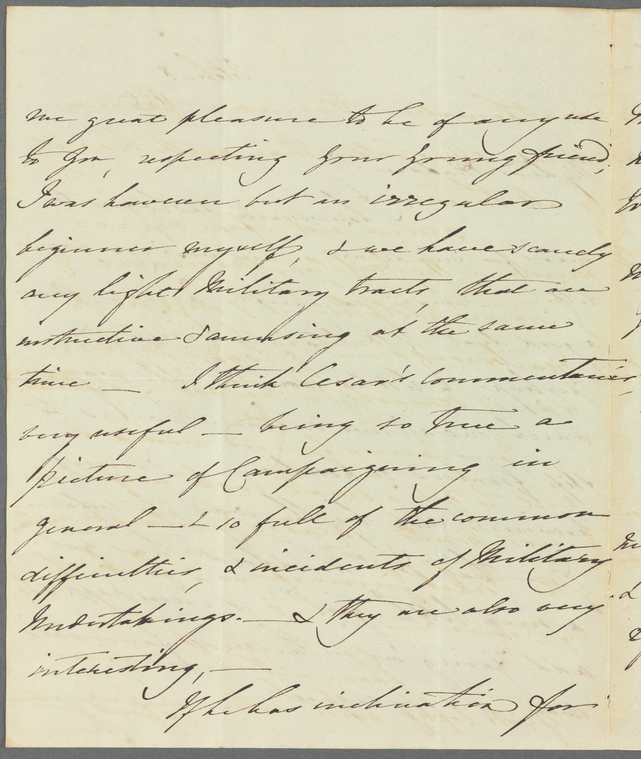 me great pleasure to be of any use
to you, respecting your young friend,
I was however but an irregular
beginner myself, & we have scarcely
any light Military tracts, that are
instructive & amusing at the same
time — I think Cesar's Commentaries,
very useful — being so true a
picture of Campaigning in
general — & so full of the common
difficulties, & incidents of Military
Undertakings. — & they are also very
interesting, —
If he has inclination for